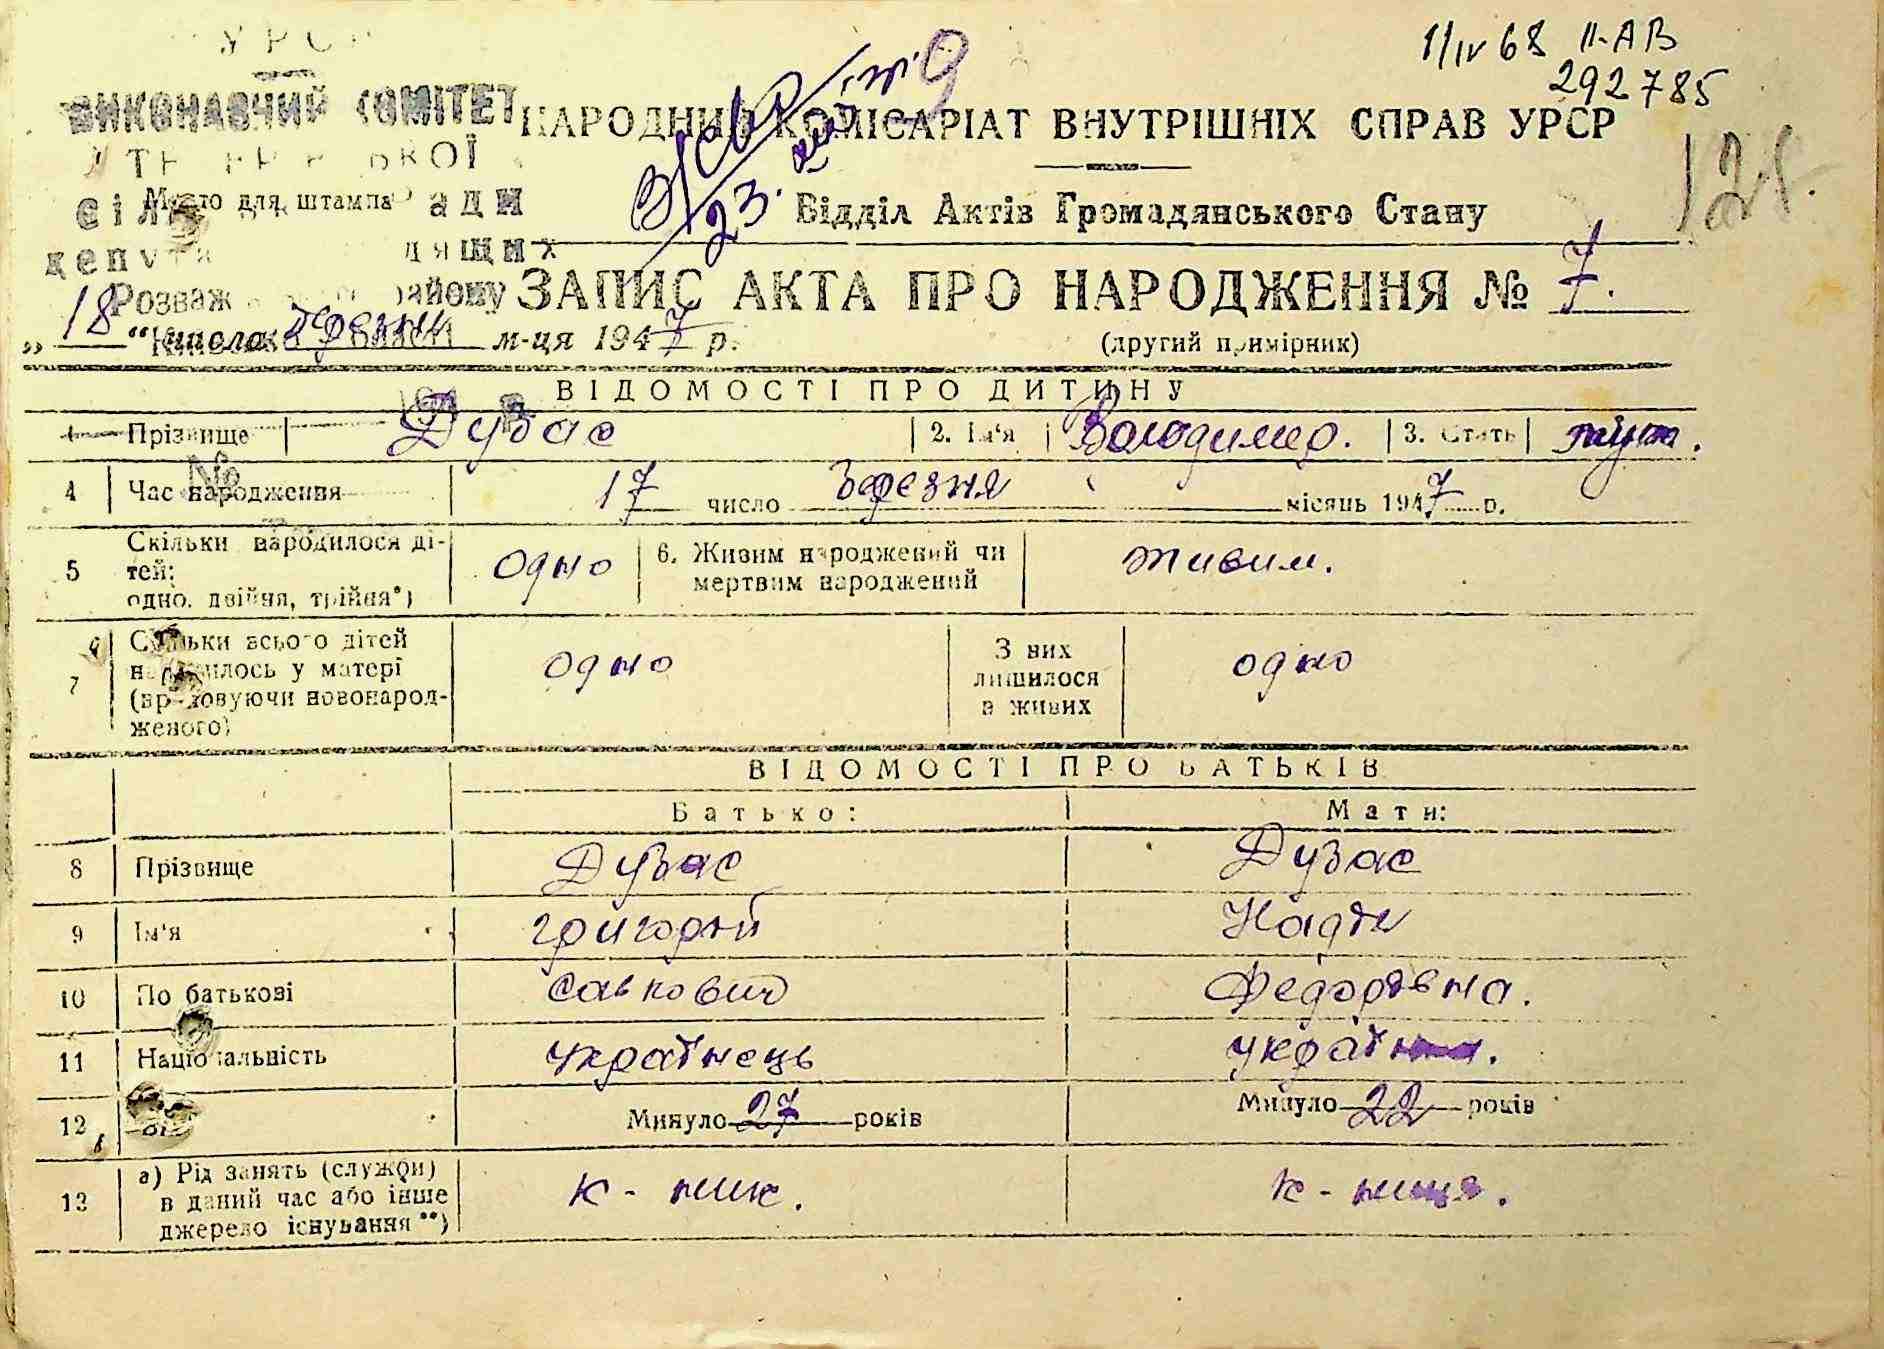 УРСР
ВИКОНАВЧИЙ КОМІТЕТ
Місто для штампа
1/IV 68 II-АВ
292785
НАРОДНИЙ КОМІСАРІАТ ВНУТРІШНІХ СПРАВ УРСР
23.
Відділ Актів Громадянського Стану
ЗАПИС АКТА ПРО НАРОДЖЕННЯ № 7.
„ 18 “ числа березня м-ця 1947 р.
(другий примірник)
ВІДОМОСТІ ПРО ДИТИНУ
1 Прізвище Дузас 2. Ім'я Володимер. 3. Стать
4 Час народження 17 число березня місяць 1947 р.
5 Скільки народилося ді-
тей:
одно, двійня, трійня*)
одно
6. Живим народжений чи
мертвим народжений
живим.
7 Скільки всього дітей
народилось у матері
(враховуючи новонарод-
женого)
одно
З них
лишилося
в живих
одно
ВІДОМОСТІ ПРО БАТЬКІВ
Батько: Мати:
8 Прізвище Дузас Дузас
9 Ім'я Григорій Надія
10 По батькові Савкович Федорівна.
11 Національність українець україн
12 Вік Минуло 27 років Минуло 22 років
13 а) Рід занять (служби)
в даний час або інше
джерело існування **)
к-ник. к-ниця.